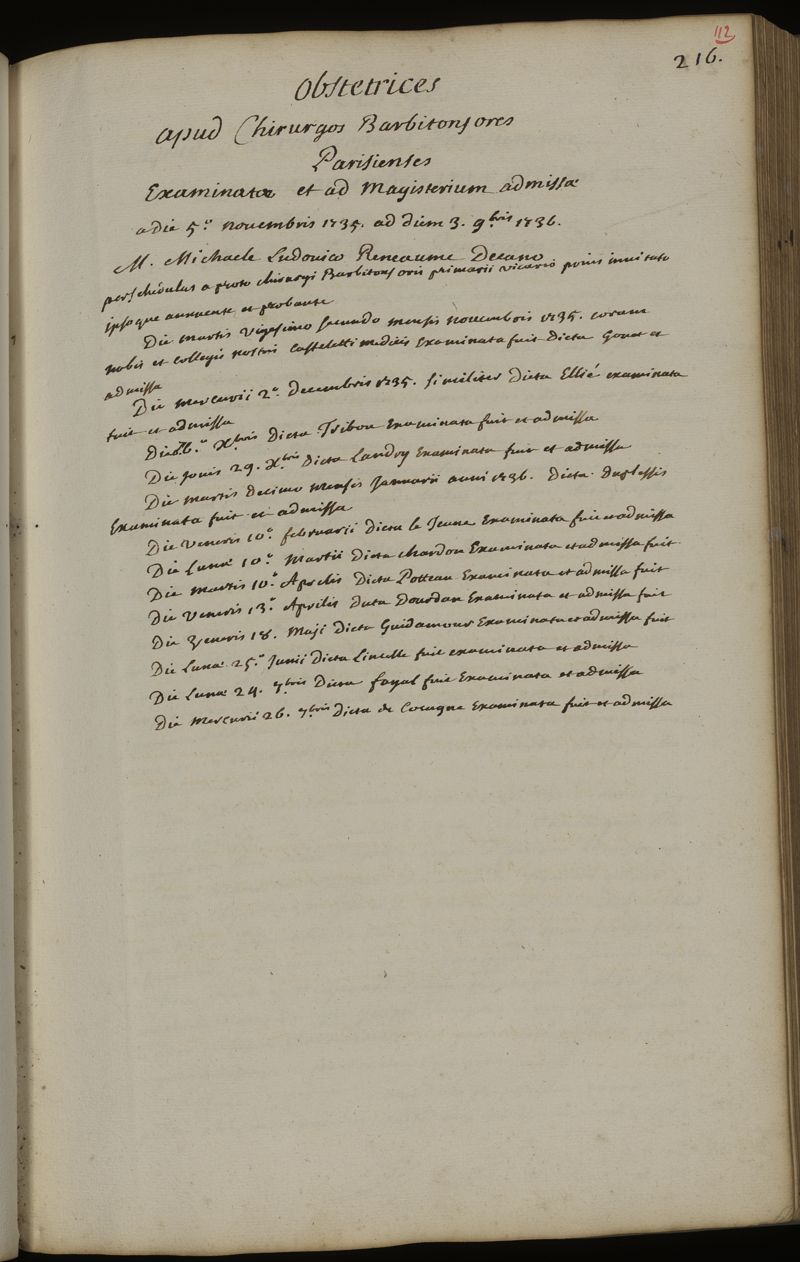 112
216.
Obstetrices
apud Chirurgos Barbitonsores
Parisienses
Examinatæ et ad Magisterium admissæ
a die 5.a novembris 1735. ad diem 3. 9.bris 1736.
M. Michaele Ludovico Reneaume Decano
per schedulas a proto chirurgi Barbitonsoris primarii vicario prius invitato
ipsoque annuente et probante
Die martis vigesimo secundo mensis novembris 1735. coram
nobis et collegis nostris Castelleti medicis Examinata fuit Dicta Gouet et
admissa
Die mercurii 2.a Decembris 1735. similiter Dicta Ellié examinata
fuit et admissa
Die Xbris Dicta Tribou Examinata fuit et admissa
Die Jovis 29. Xbris Dicta Landry Examinata fuit et admissa
Die martis decimo mensis Januarii anni 1736. Dicta Duplessis
Examinata fuit et admissa
Die Veneris 10.a februarii Dicta le Jeune Examinata fuit et admissa
Die Lunæ 10.a Martii Dicta chardon Examinata et admissa fuit.
Die martis 10.a Aprilis Dicta Potteau Examinata et admissa fuit
Die Veneris 13.a Aprilis Dicta Dourdan Examinata et admissa fuit
Die Veneris 18. Maji Dicta Guidamour Examinata et admissa fuit
Die Lunæ 25.a Junii Dicta Lincelle fuit examinata et admissa
Die Lunæ 24. 7bris Dicta fayal fuit Examinata et admissa
Die Mercurii 26. 7bris Dicta de Cocagne Examinata fuit et admissa